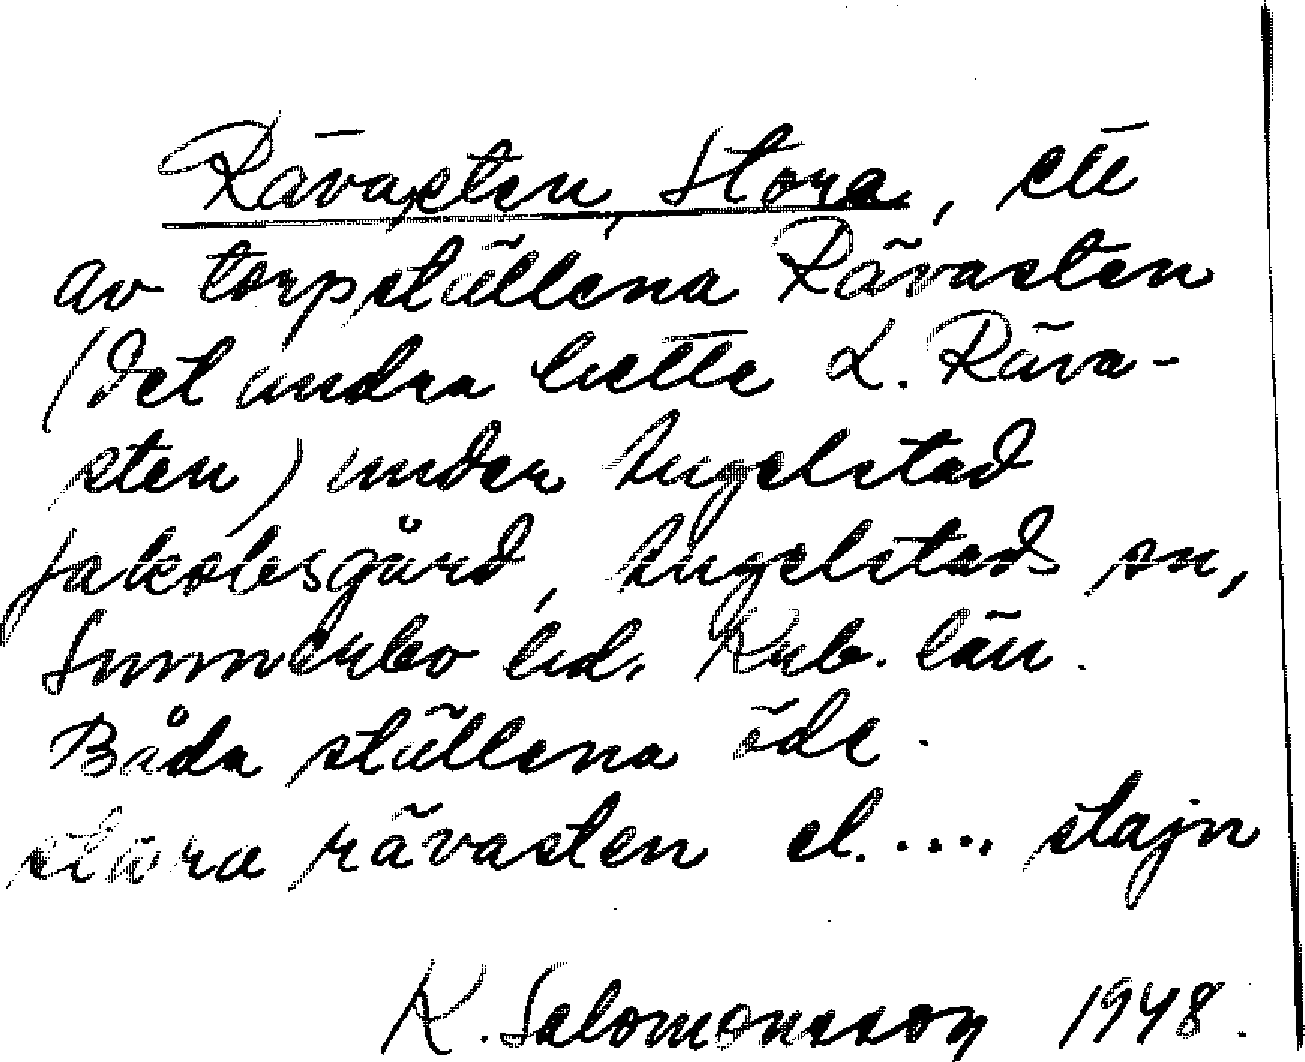 Rävasten, Stora, ett
av torpställena Rävasten
(det andra hette L. Räva-
sten) under Ingelstad
Jakobsgård, Ingelstads sn,
Sunnerbo hd. Krb. län.
Båda ställena öde.
stora rävasten el. .... stajn
K. Salomonsson 1948.